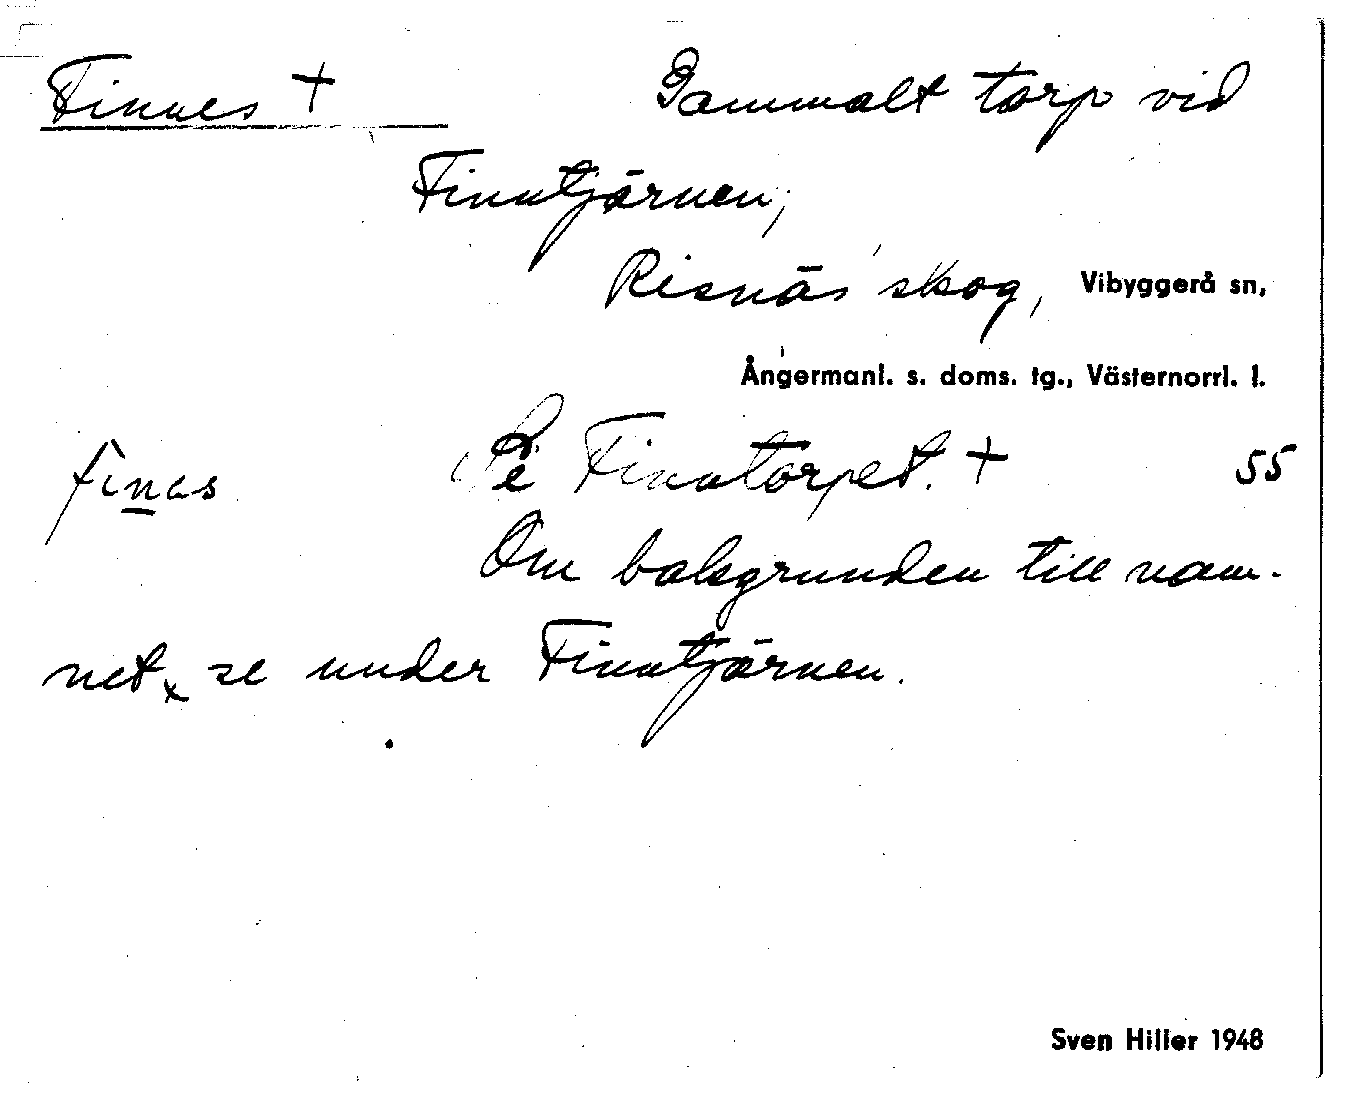 Finnes + Gammalt torp vid
Finntjärnen,
Risnäs skog, Vibyggerå sn,
Ångermanl. s. doms. tg., Västernorrl. l.
fines Finntorpet. + 55
Om bakgrunden till nam-
net, se under Finntjärnen.
Sven Hiller 1948